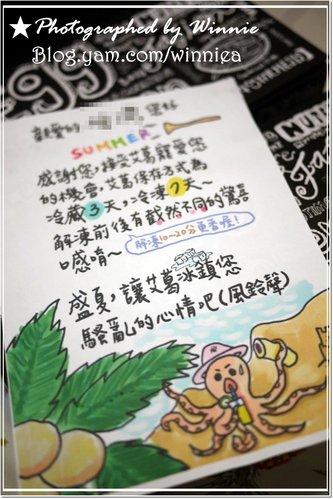 Photographed by Winnie
Blog.yam.com/winniea
親愛的 您好
SUMMER~
感謝您，接受艾葛寵愛您
的機會，艾葛保存方式為
冷藏3天，冷凍7天~
解凍前後有截然不同的驚喜
口感唷~
解凍10~20分更香喔!
盛夏，讓艾葛冰鎮您
騷亂的心情吧(風鈴聲)